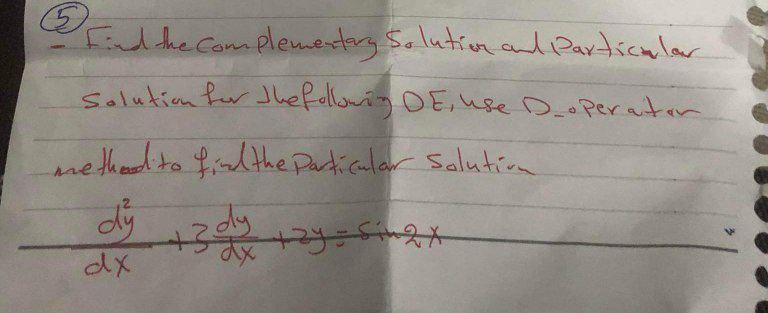 5
- Find the Complementary Solution and Particular
Solution for the following DE, use D-operator
method to find the Particular Solution
d²y/dx + 3 dy/dx + 2y = sin 2x